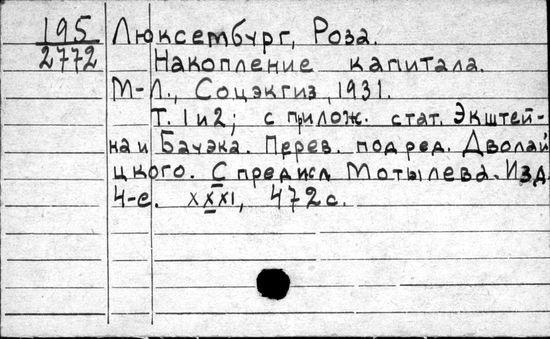 195
2772
Люксембург, Роза.
Накопление капитала.
М-Л., Соцэкгиз, 1931.
Т. 1 и 2; с прилож. стат. Экштей-
на и Бауэка. Перев. под ред. Дволай
цкого. С предисл Мотылева. Изд.
4-е. XXXI, 472 с.